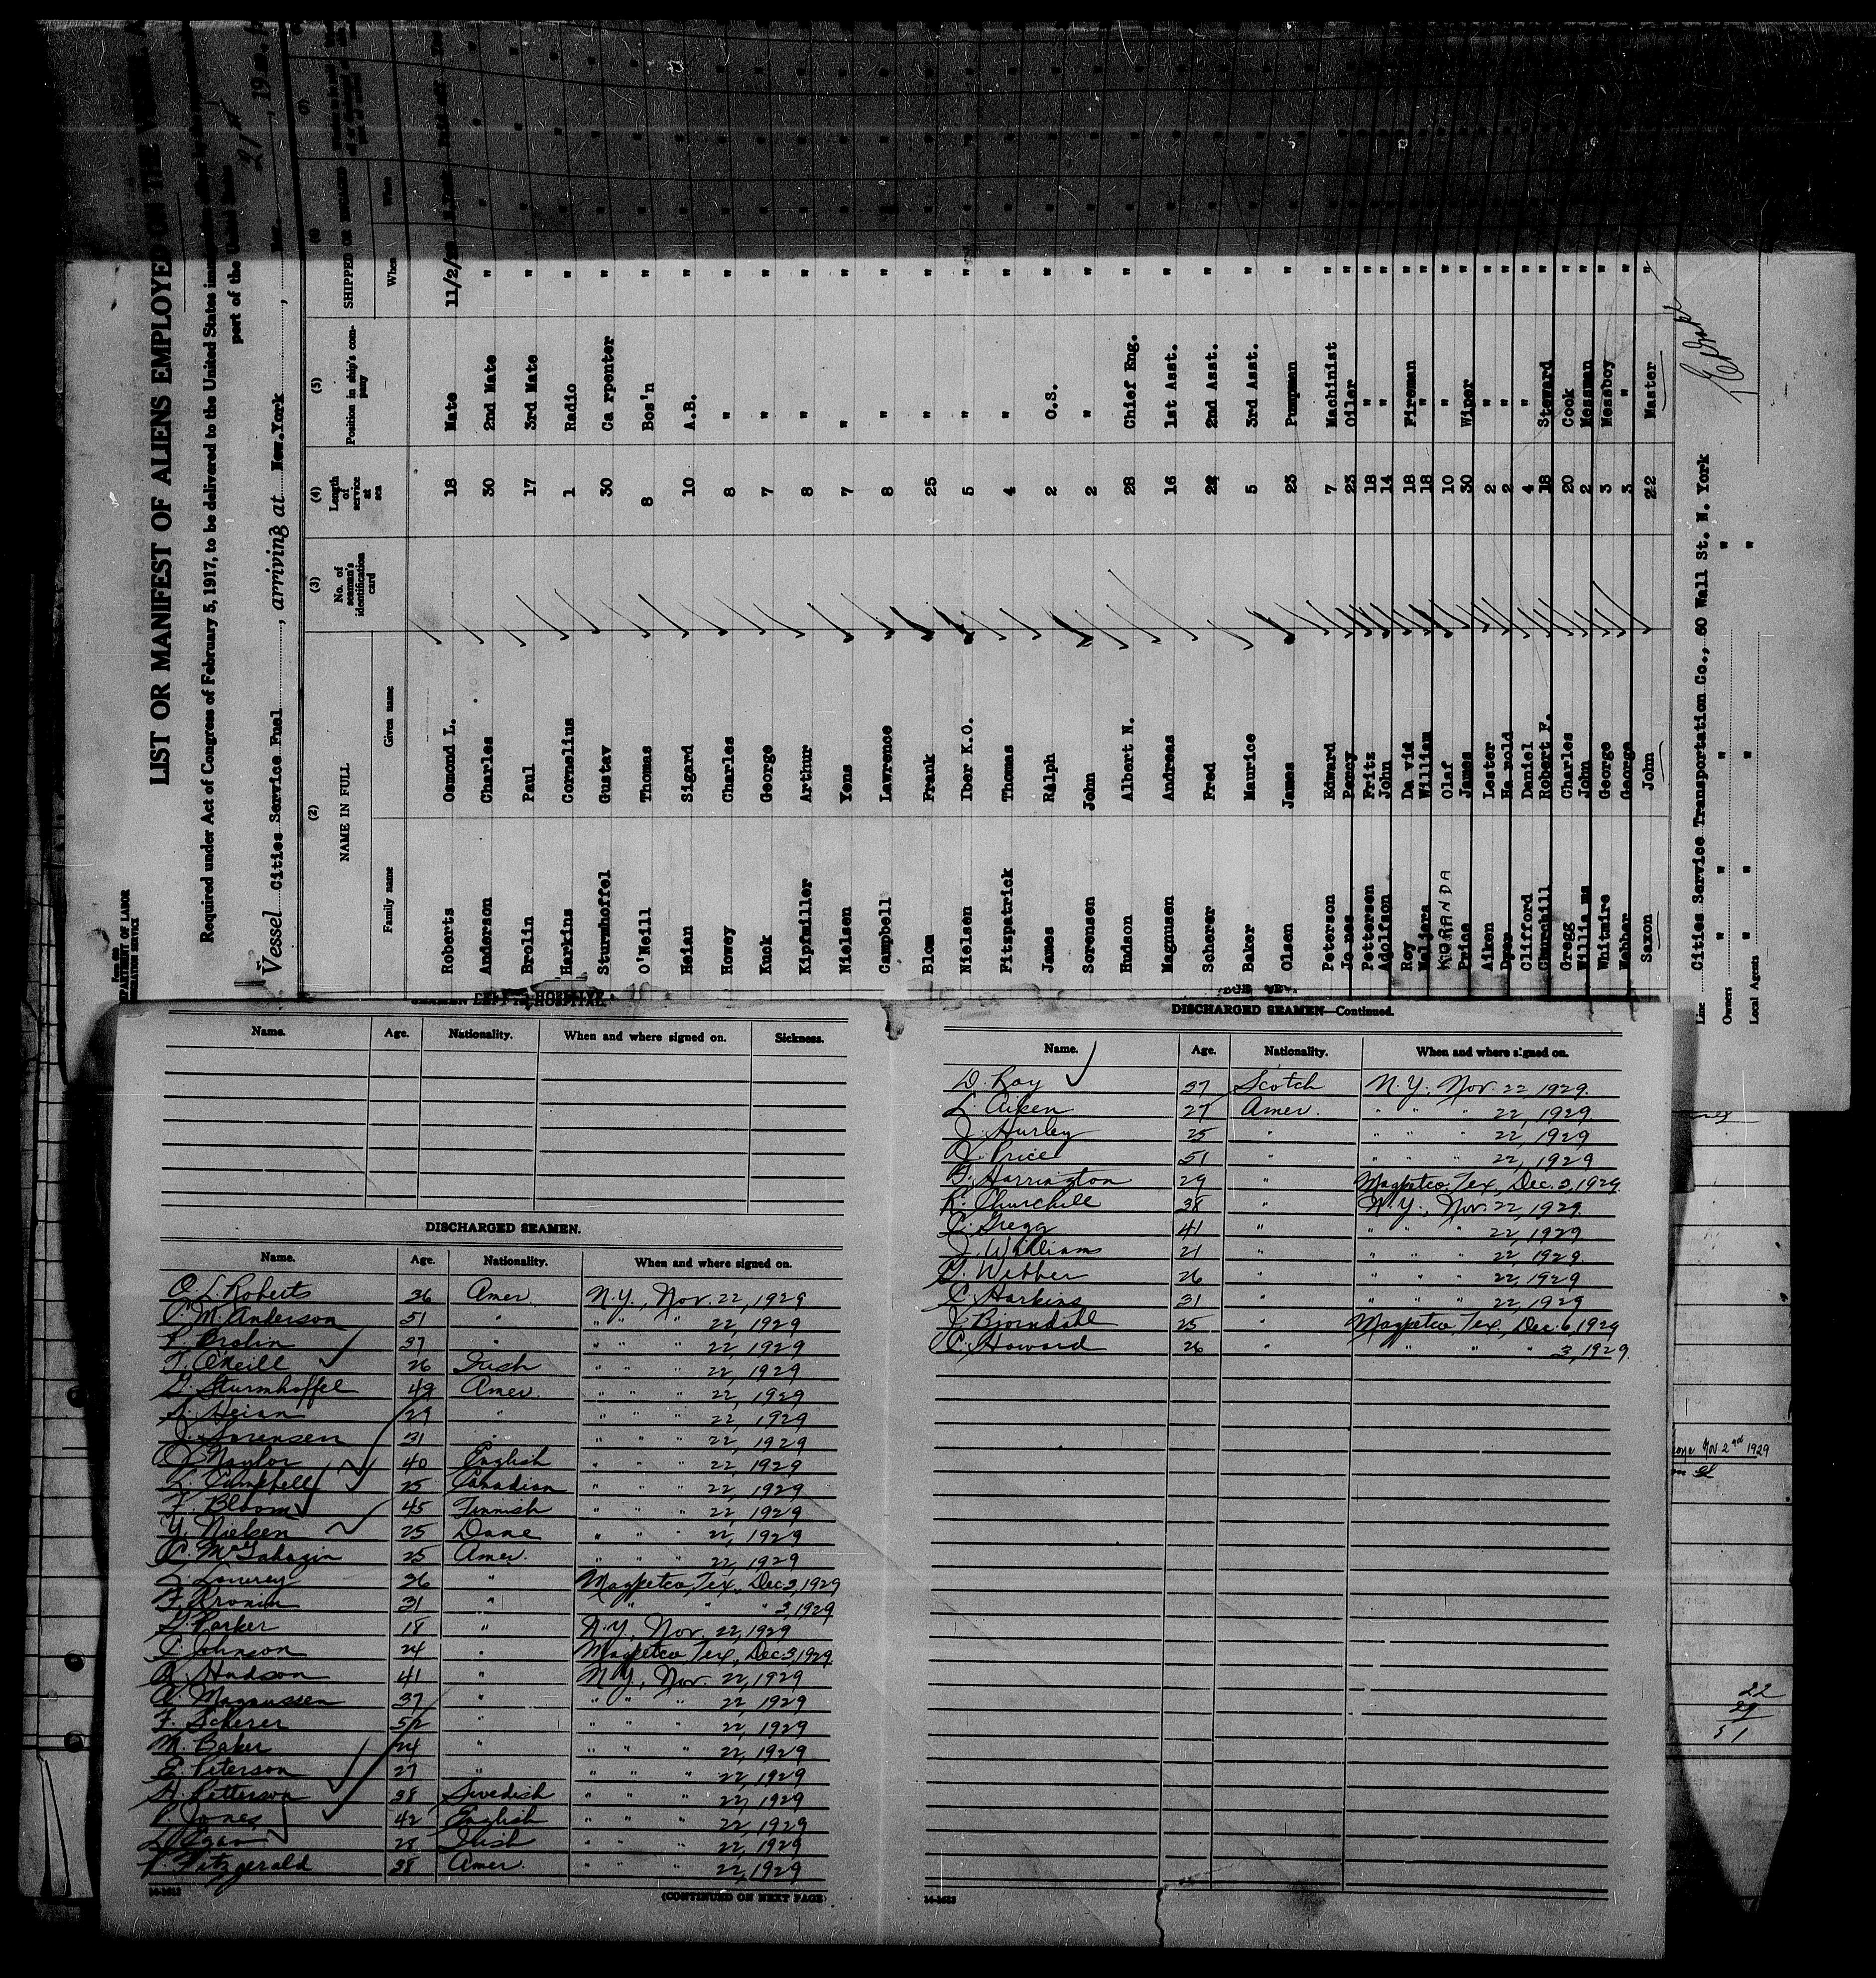 Form 689
DEPARTMENT OF LABOR
IMMIGRATION SERVICE
LIST OR MANIFEST OF ALIENS EMPLOYED ON THE VESSEL
Required under Act of Congress of February 5, 1917, to be delivered to the United States
port of the United States
Vessel Cities Service Fuel, arriving at New.York, Dec. 21st, 19
(2) (3) (4) (5) (6) (7)
NAME IN FULL No. of seaman's identification card Length of service at sea Position in ship's company SHIPPED OR ENGAGED
Family name Given name When
Roberts Osmond L. 18 Mate 11/2/29
Anderson Charles 30 2nd Mate "
Brolin Paul 17 3rd Mate "
Harkins Cornelius 1 Radio "
Sturmhoffel Gustav 30 Ca rpenter "
O'Neill Thomas 8 Bos'n "
Heian Sigard 10 A.B. "
Howey Charles 8 " "
Kuck George 7 " "
Kipfmiller Arthur 8 " "
Nielsen Yens 7 " "
Campbell Lawrence 8 " "
Blom Frank 25 " "
Nielsen Iber K.O. 5 " "
Fitzpatrick Thomas 4 " "
James Ralph 2 O.S. "
Sorensen John 2 " "
Hudson Albert N. 28 Chief Eng. "
Magnusen Andreas 16 1st Asst. "
Scherer Fred 22 2nd Asst. "
Baker Maurice 5 3rd Asst. "
Olsen James 23 Pumpman "
Peterson Edward 7 Machinist "
Jo nes Percy 23 Oiler "
Pettersen Fritz 18 " "
Adolfson John 14 " "
Roy Da vid 18 Fireman "
William 18 " "
Olaf 10 " "
Price James 30 Wiper "
Aiken Lester 2 " "
Dyer Ha rold 2 " "
Clifford Daniel 4 " "
Churchill Robert F. 18 Steward "
Gregg Charles 20 Cook "
Willia ms John 2 Messman "
Whitmire George 3 Messboy "
Webber George 3 " "
Saxon John 22 Master "
Line Cities Service Transportation Co., 60 Wall St. N. York
Owners " " " "
Local Agents " " " "
SEAMEN LEFT IN HOSPITAL.
Name. Age. Nationality. When and where signed on. Sickness.
DISCHARGED SEAMEN.
Name. Age. Nationality. When and where signed on.
O. L. Roberts 36 Amer. N.Y., Nov. 22, 1929
C. M. Anderson 51 " " " " 22, 1929
P. Brolin 37 " " " " 22, 1929
T. O'Neill 26 Irish " " " 22, 1929
G. Sturmhoffel 49 Amer. " " " 22, 1929
S. Heian 29 " " " " 22, 1929
J. Sorensen 31 " " " " 22, 1929
J. Naylor 40 English " " " 22, 1929
L. Campbell 25 Canadian " " " 22, 1929
F. Bloom 45 Finnish " " " 22, 1929
Y. Nielsen 25 Dane " " " 22, 1929
C. McGahagin 25 Amer. " " " 22, 1929
L. Lowrey 26 " Magpetco, Tex., Dec 3, 1929
F. Cronin 31 " " " " 3, 1929
G. Parker 18 " N.Y., Nov. 22, 1929
C. Johnson 24 " Magpetco, Tex., Dec 3, 1929
A. Hudson 41 " N.Y., Nov. 22, 1929
A. Magnussen 37 " " " " 22 1929
F. Scherer 52 " " " " 22, 1929
M. Baker 24 " " " " 22, 1929
E. Peterson 27 " " " " 22, 1929
A. Petterson 38 Swedish " " " 22, 1929
P. Jones 42 English " " " 22, 1929
L. Egan 28 Irish " " " 22, 1929
Fitzgerald 38 Amer. " " " 22, 1929
14-1613
(CONTINUED ON NEXT PAGE)
DISCHARGED SEAMEN—Continued.
Name. Age. Nationality. When and where signed on.
D. Roy 37 Scotch N.Y., Nov. 22, 1929.
L. Aiken 27 Amer. " " " 22, 1929.
J. Hurley 25 " " " " 22, 1929
J. Price 51 " " " " 22, 1929
G. Harrington 29 " Magpetco, Tex., Dec. 3, 1929.
R. Churchill 38 " N.Y., Nov. 22, 1929.
C. Gregg 41 " " " " 22, 1929
J. Williams 21 " " " " 22, 1929.
G. Webber 26 " " " " 22, 1929
C. Harkins 31 " " " " 22, 1929
J. Bjorndahl 25 " Magpetco, Tex., Dec. 6, 1929
C. Howard 26 " " " " 3, 1929.
14-1613
Nov 2nd 1929
22
29
51